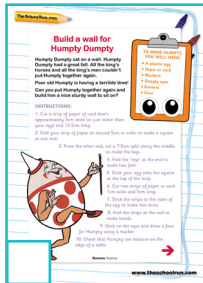 TheSchoolRun.com
Build a wall for
Humpty Dumpty
Humpty Dumpty sat on a wall. Humpty
Dumpty had a great fall. All the king's
horses and all the king's men couldn't
put Humpty together again.
Poor old Humpty is having a terrible time!
Can you put Humpty together again and
build him a nice sturdy wall to sit on?
TO MAKE HUMPTY,
YOU WILL NEED:
• A plastic egg
• Paper or card
• Markers
• Googly eyes
• Scissors
• Glue
INSTRUCTIONS:
1. Cut a strip of paper of card that's
approximately 5cm wide (or just wider than
your egg) and 12.5cm long.
2. Fold your strip of paper at around 5cm in order to make a square
at one end.
3. From the other end, cut a 7.5cm split along the middle
to make the legs.
4. Fold the 'legs' at the end to
make two feet.
5. Stick your egg onto the square
at the top of the strip.
6. Cut two strips of paper or card
1cm wide and 5cm long.
7. Stick the strips to the sides of
the egg to make two arms.
8. Fold the strips at the end to
make hands.
9. Stick on the eyes and draw a face
for Humpty using a marker.
10. Check that Humpty can balance on the
edge of a table.
Nursery Science
www.theschoolrun.com